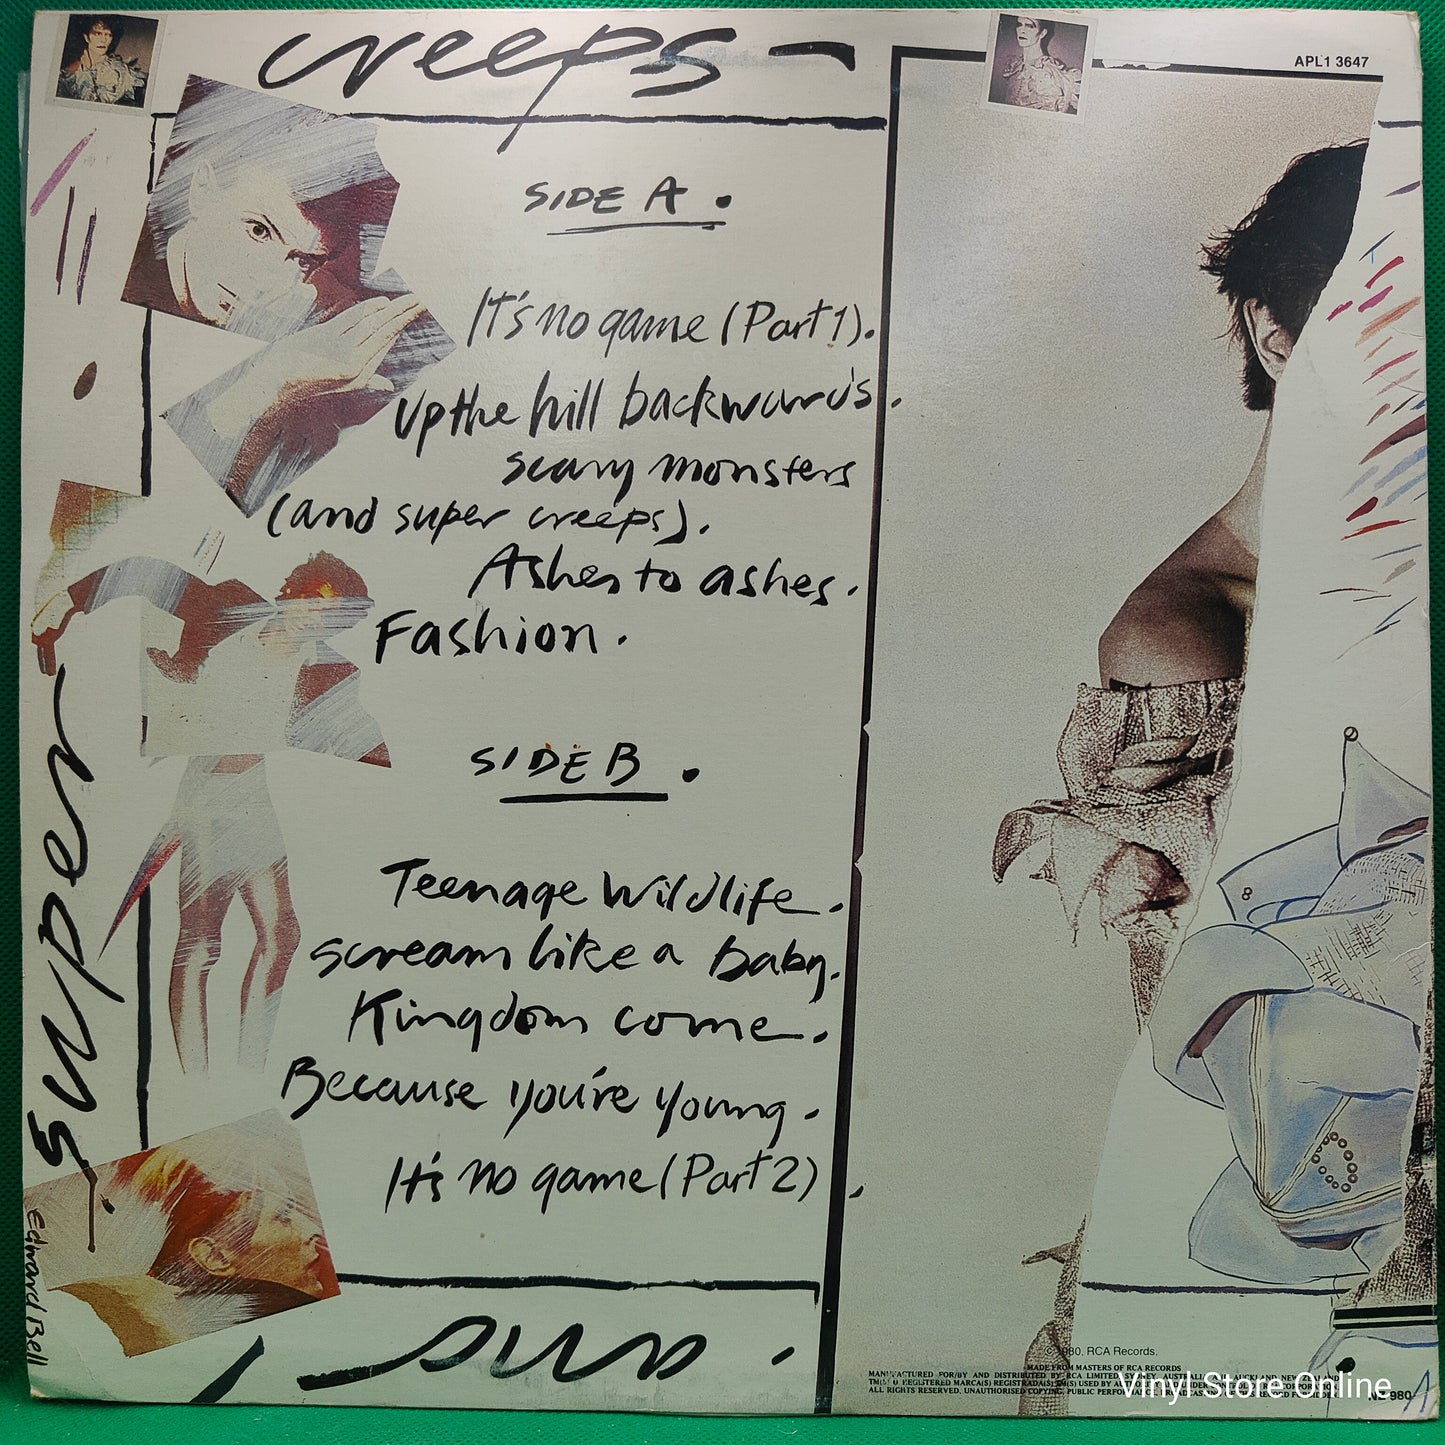 creeps
APL1 3647
SIDE A.
It's no game (Part 1).
Up the hill backwards.
scary monsters
(and super creeps).
Ashes to ashes.
Fashion.
SIDE B.
Teenage Wildlife.
scream like a baby.
Kingdom come.
Because you're young.
It's no game (Part 2).
super
Edward Bell
1980, RCA Records.
MADE FROM MASTERS OF RCA RECORDS
MANUFACTURED FOR/BY AND DISTRIBUTED BY RCA LIMITED, SYDNEY, AUSTRALIA
REGISTERED MARCA(S) REGISTRADA(S) USED BY
ALL RIGHTS RESERVED. UNAUTHORISED COPYING, PUBLIC
Vinyl Store Online
980